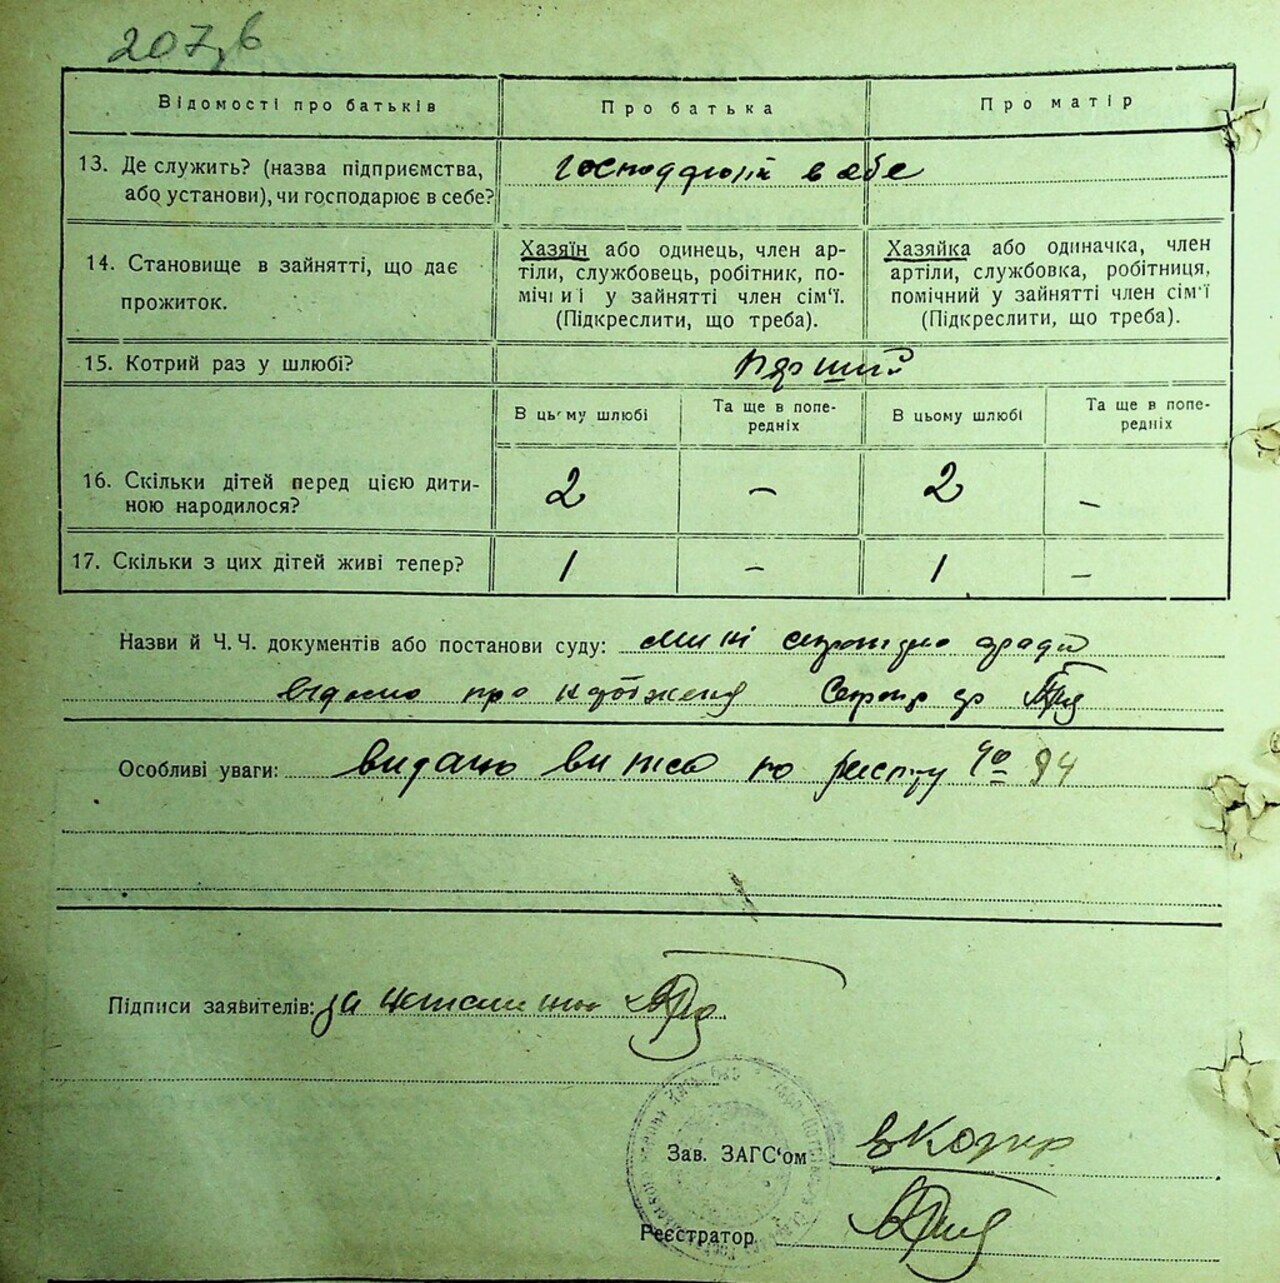 207
Відомості про батьків
Про батька
Про матір
13. Де служить? (назва підприємства,
або установи), чи господарює в себе?
в себе
14. Становище в зайнятті, що дає
прожиток.
Хазяїн або одинець, член ар-
тіли, службовець, робітник, по-
мічний у зайнятті член сім'ї.
(Підкреслити, що треба).
Хазяйка або одиначка, член
артіли, службовка, робітниця,
помічний у зайнятті член сім'ї
(Підкреслити, що треба).
15. Котрий раз у шлюбі?
перший
В цьому шлюбі
Та ще в попе-
редніх
В цьому шлюбі
Та ще в попе-
редніх
16. Скільки дітей перед цією дити-
ною народилося?
2
–
2
–
17. Скільки з цих дітей живі тепер?
1
–
1
–
Назви й Ч. Ч. документів або постанови суду: мині
відомо про
Особливі уваги: видано по 94
Підписи заявителів: за
Зав. ЗАГС'ом
Реєстратор